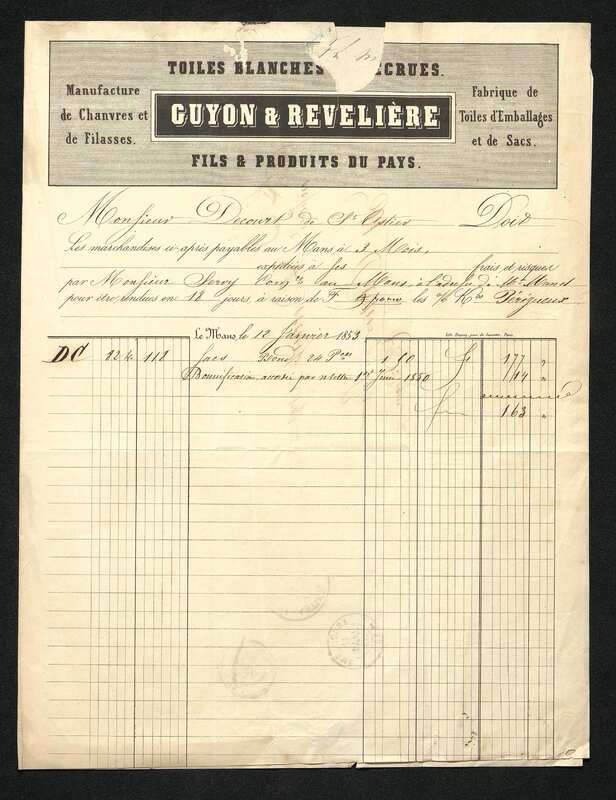 TOILES BLANCHES ECRUES.
Manufacture
de Chanvres et
de Filasses.
GUYON & REVELIÈRE
Fabrique de
Toiles d'Emballages
et de Sacs.
FILS & PRODUITS DU PAYS.
Monsieur Decourt de St Astier Doit
Les marchandises ci-après payables au Mans à 3 Mois,
expédiées à ses frais et risques
par Monsieur au Mans, à l'adresse de Mr
pour être rendues en 18 jours à raison de F les % Kos Périgueux
Le Mans, le 12 Janvier 1853
DC 22 k. 112 Sacs 24 Pces 1 60 F 177 "
Bonification accordée par n lettre 1er Juin 1850 14 "
F 163 "